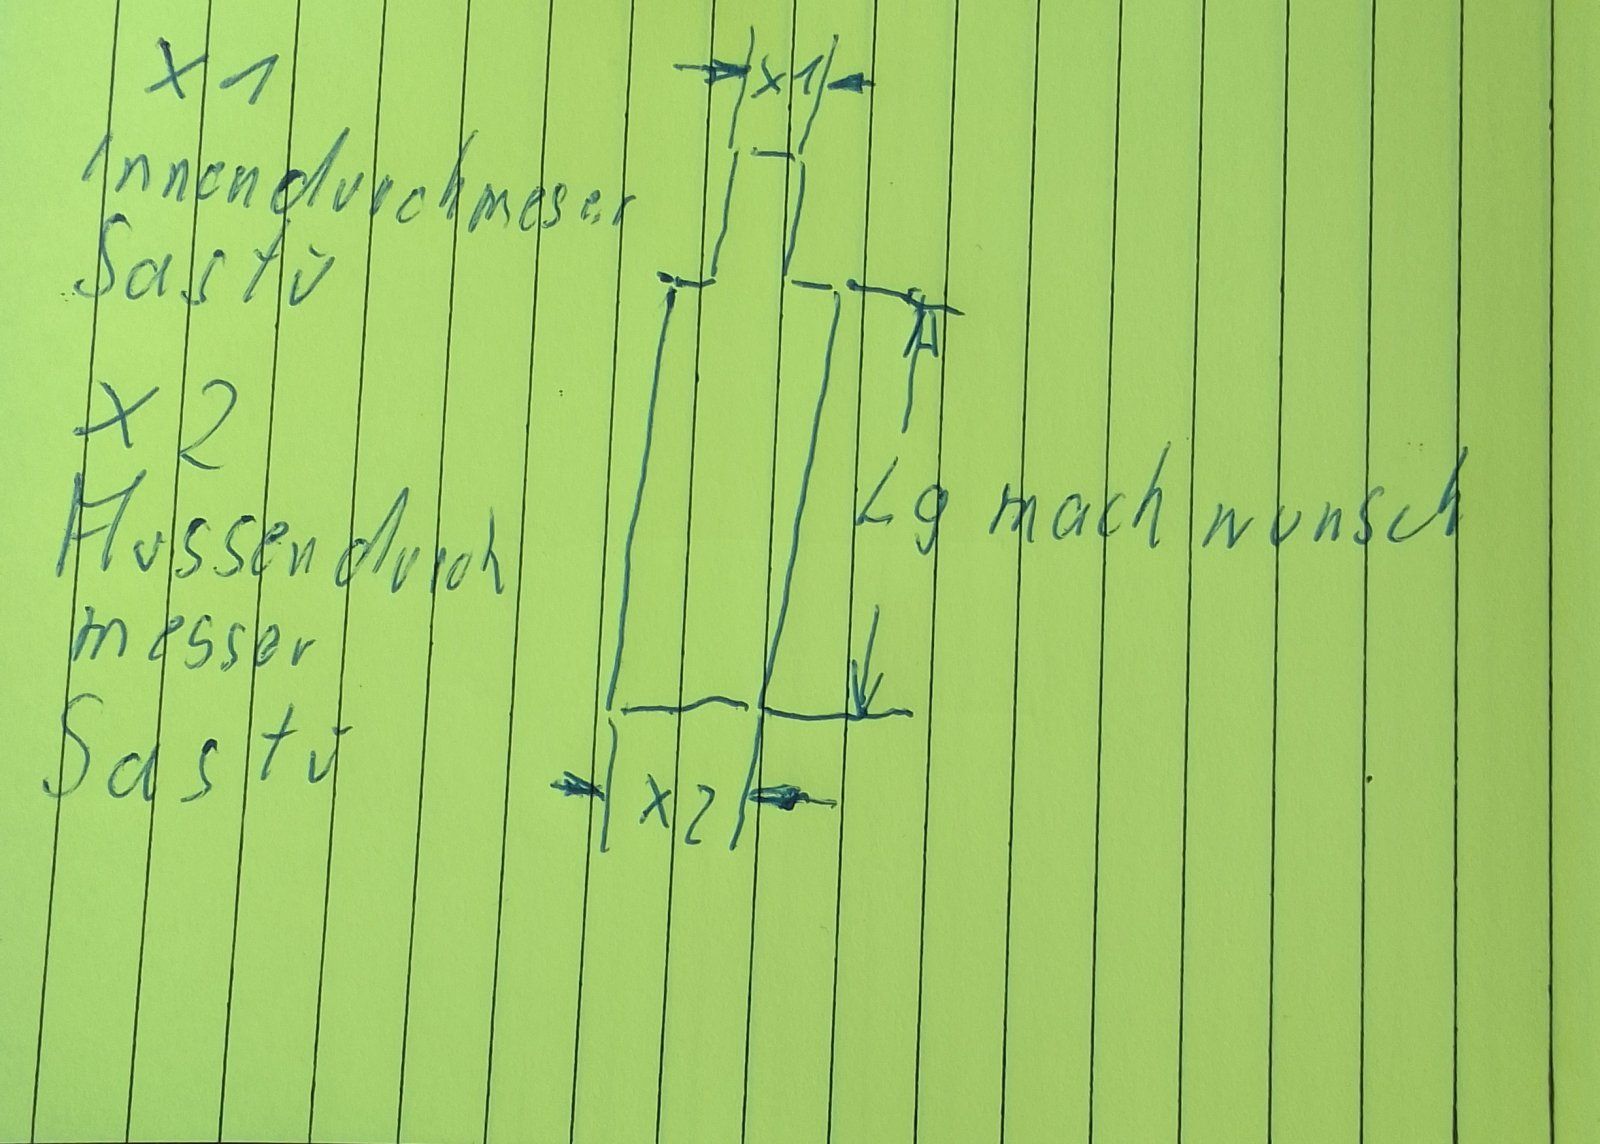 x1
x1
Innendurchmeser
Sastü
x2
Aussendurch
messer
Sastü
Lg mach wunsch
x2